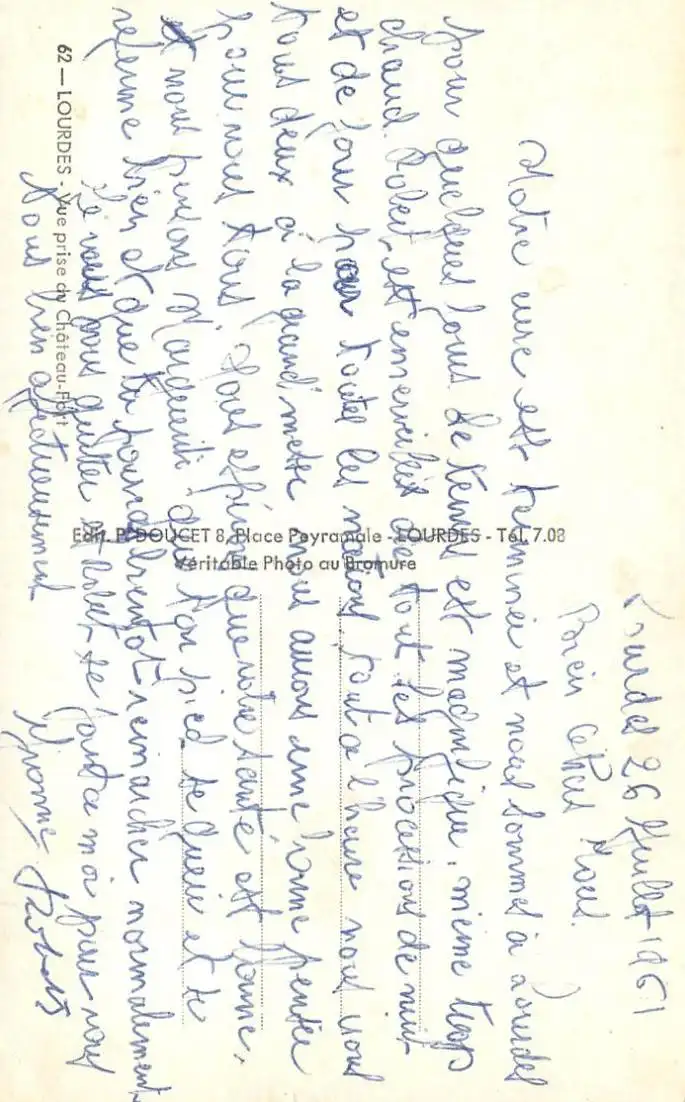 Lourdes 26 Juillet 1961
Bien Chers Tous.
Notre cure est terminée et nous sommes à Lourdes
pour quelques jours. Le temps est magnifique, même trop
chaud. Robert est émerveillé de tout les processions de nuit
et de jour pour toutes les nations, tout à l'heure nous irons
tous deux à la grand messe nous aurons une bonne pensée
pour vous tous. Nous espérons que votre santé est bonne,
et nous pensons Marguerite que ton pied se guéri et se
referme bien et que tu pourras bientôt remarcher normalement
Je vais vous quitter et Robert se joint à moi pour vous
Tous bien affectueusement
Yvonne Robert
62 — LOURDES - Vue prise du Château-Fort
Edit. P. DOUCET 8, Place Peyramale - LOURDES - Tél. 7.08
Véritable Photo au Bromure